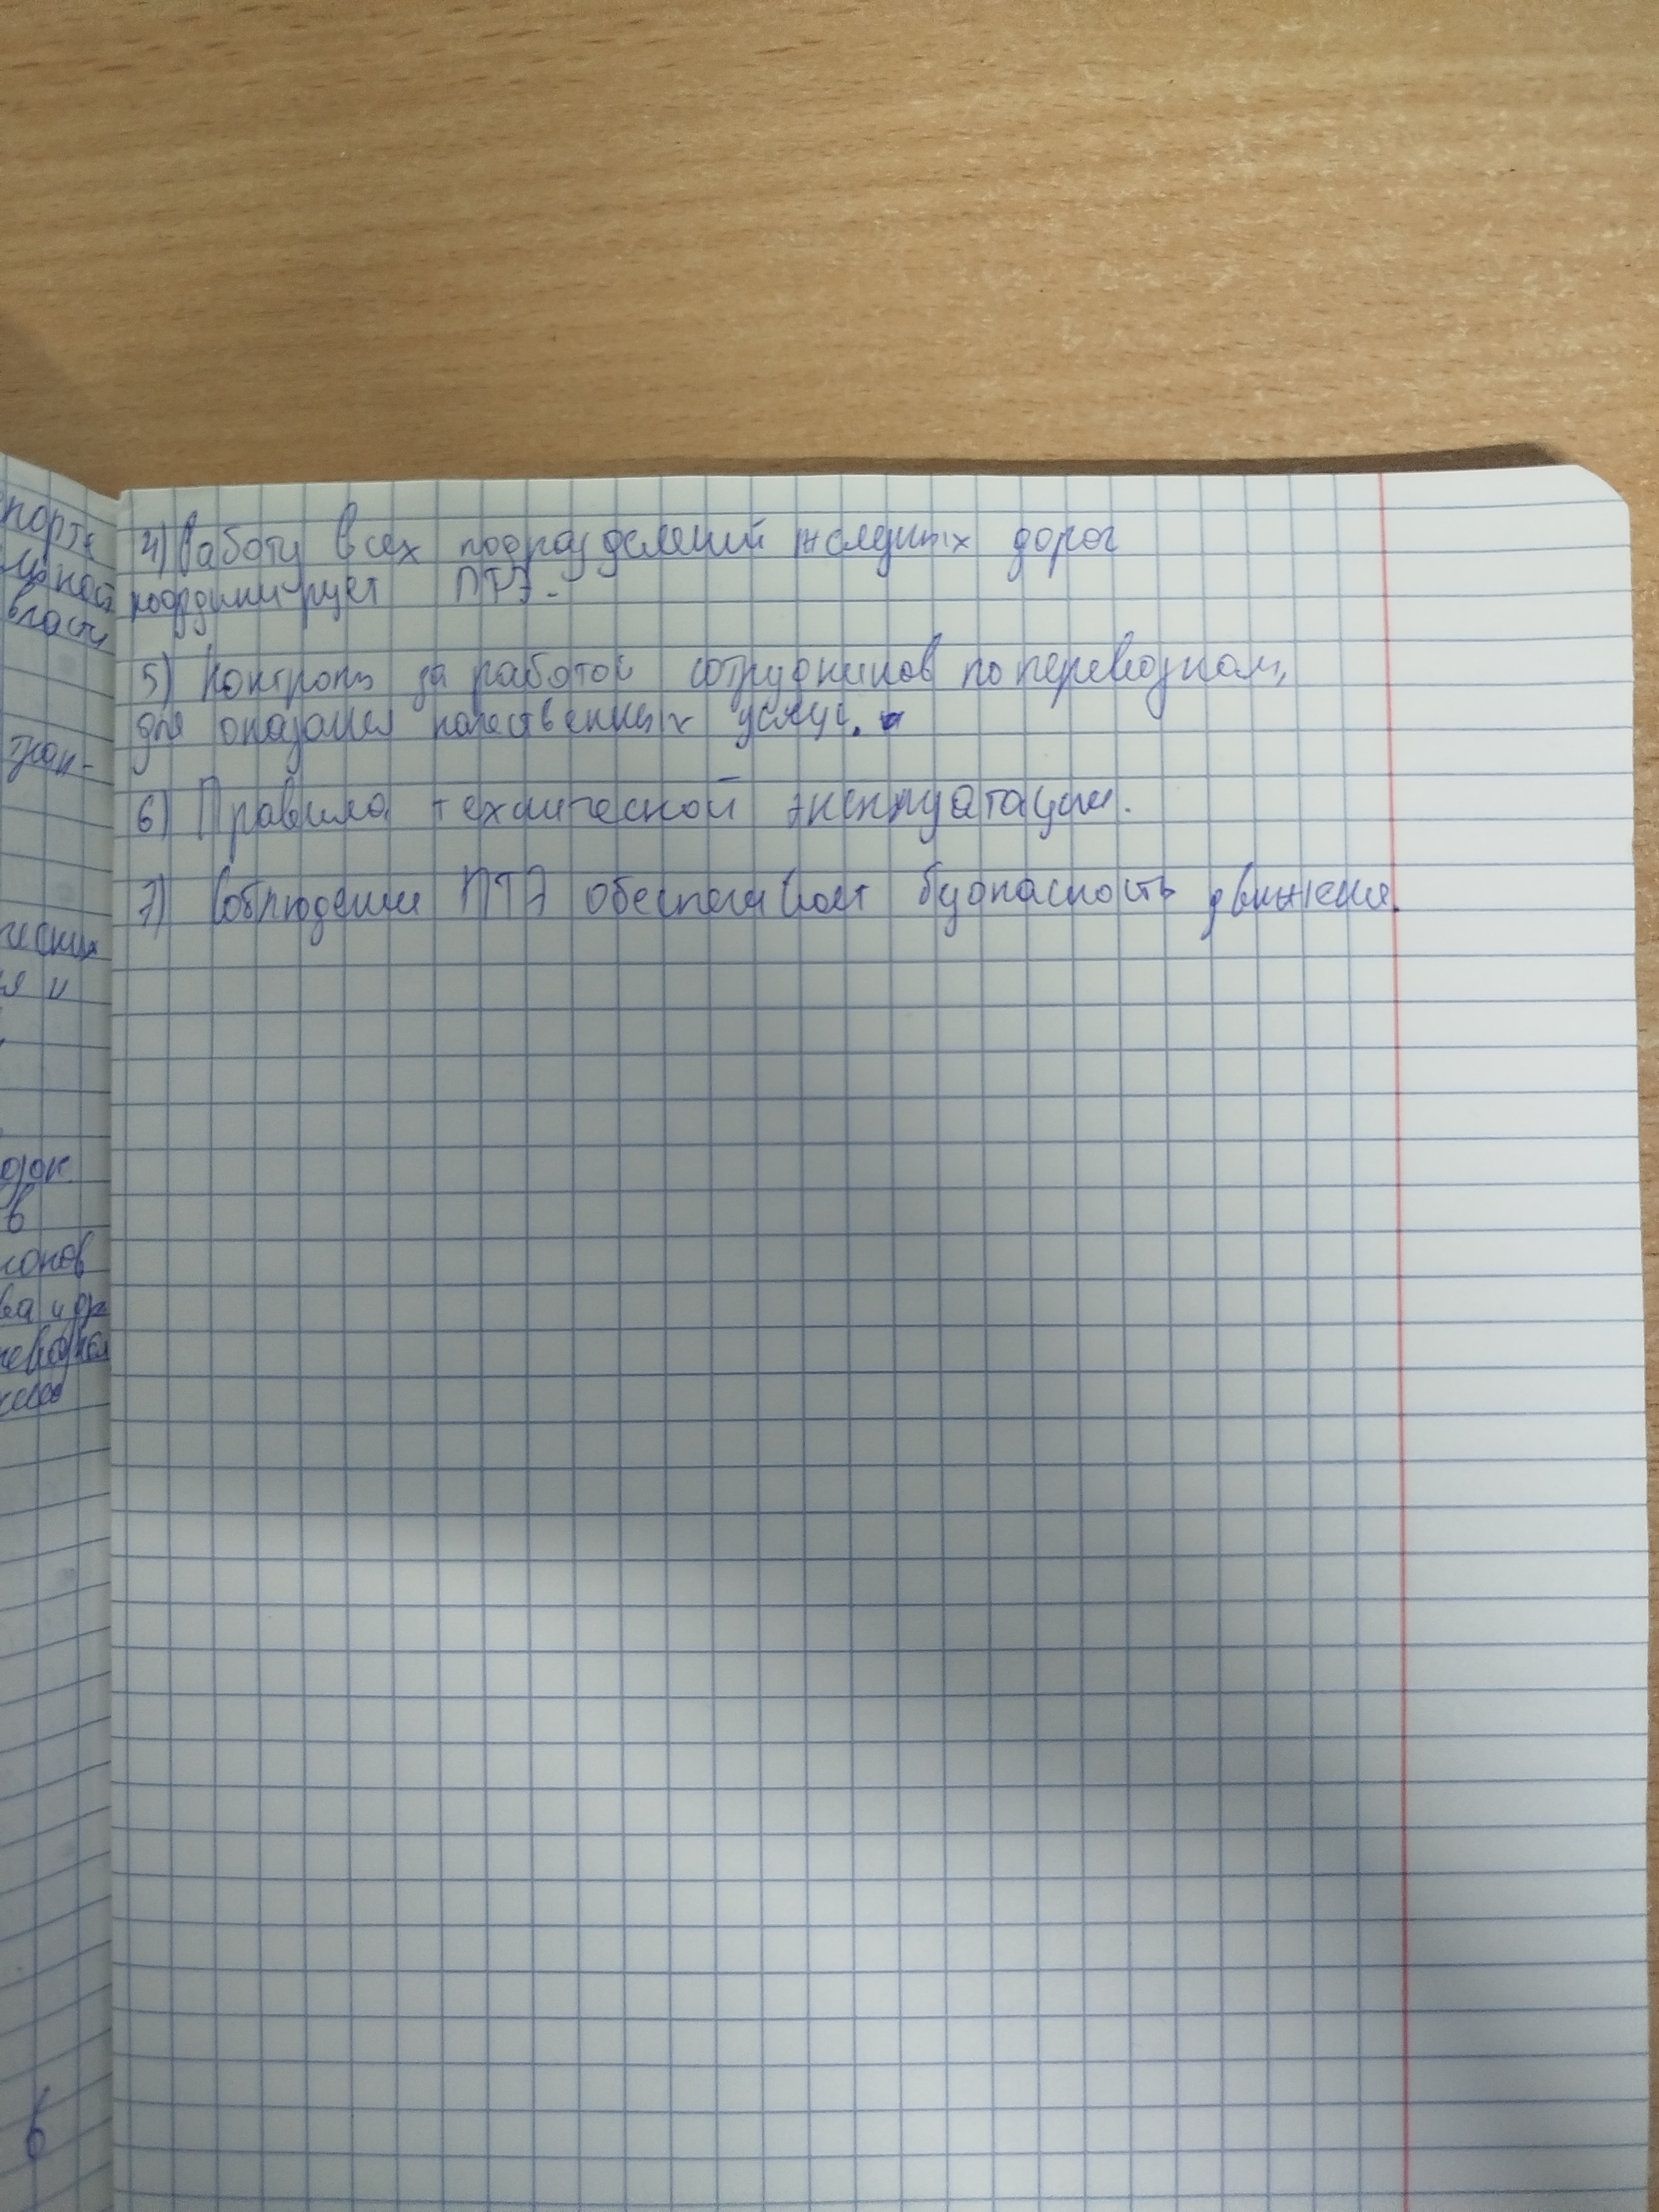 4) Работу всех подразделений железных дорог
координирует ПТЭ.
5) Контроль за работой сотрудников по перевозкам,
для оказания качественных услуг.
6) Правила технической эксплуатации.
7) Соблюдение ПТЭ обеспечивает безопасность движения.
порте
власти
тран-
ческих
я и
в
6